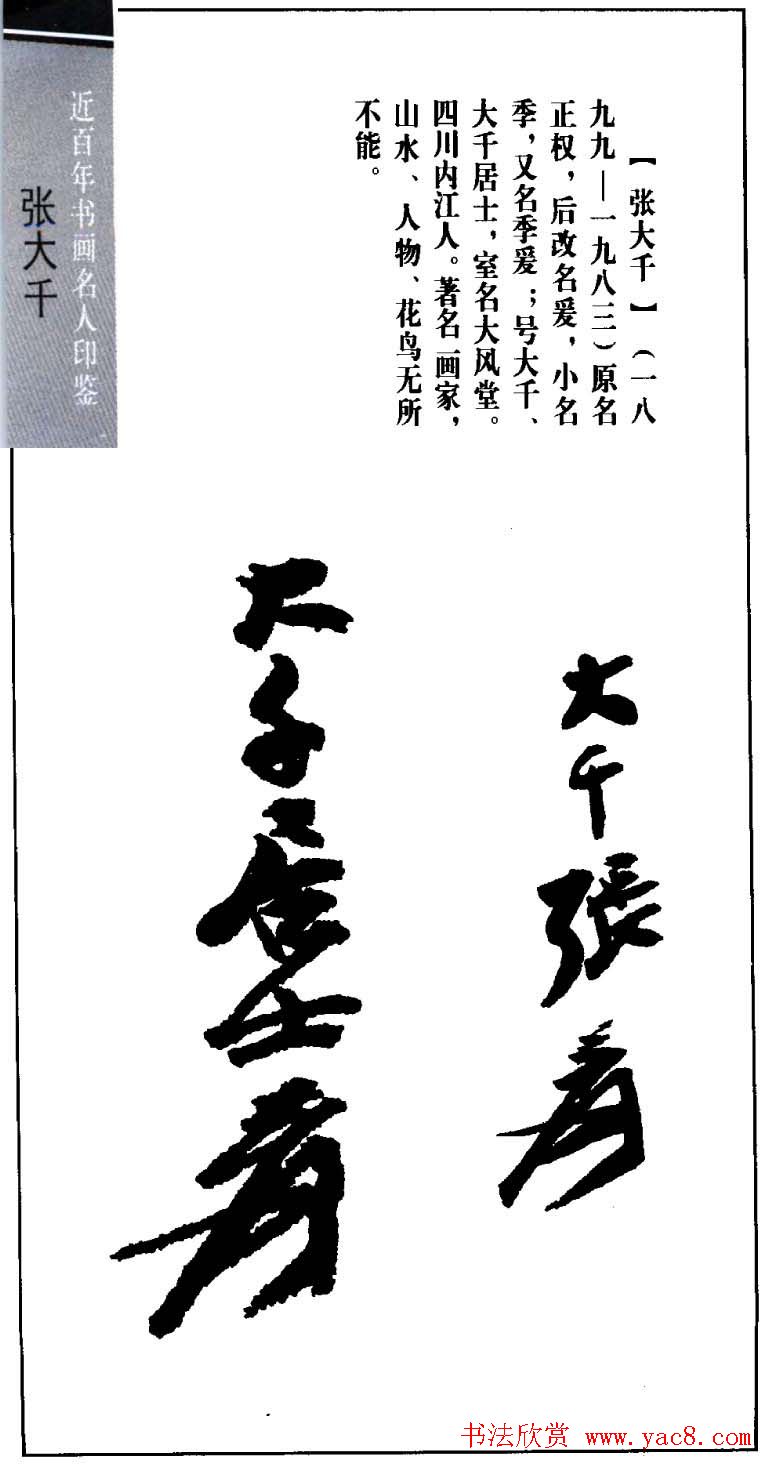 近百年书画名人印鉴
张大千
【张大千】(一八
九九—一九八三)原名
正权,后改名爰,小名
季,又名季爰;号大千、
大千居士,室名大风堂。
四川内江人。著名画家,
山水、人物、花鸟无所
不能。
大千張爰
大千居士爰
书法欣赏 www.yac8.com